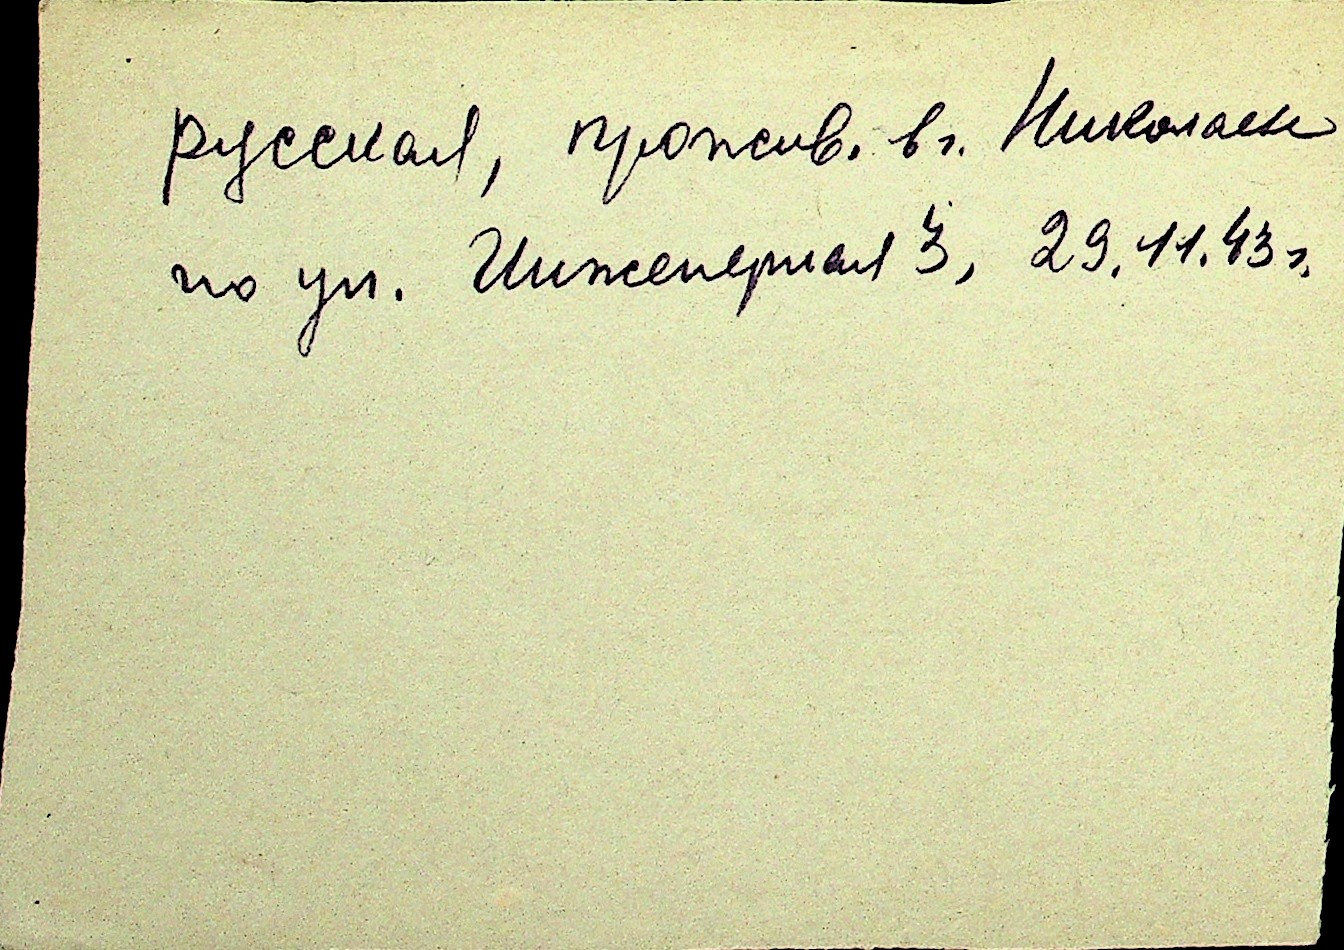 русская, прожив. в г. Николаеве
по ул. Инженерная 3, 29.11.43 г.